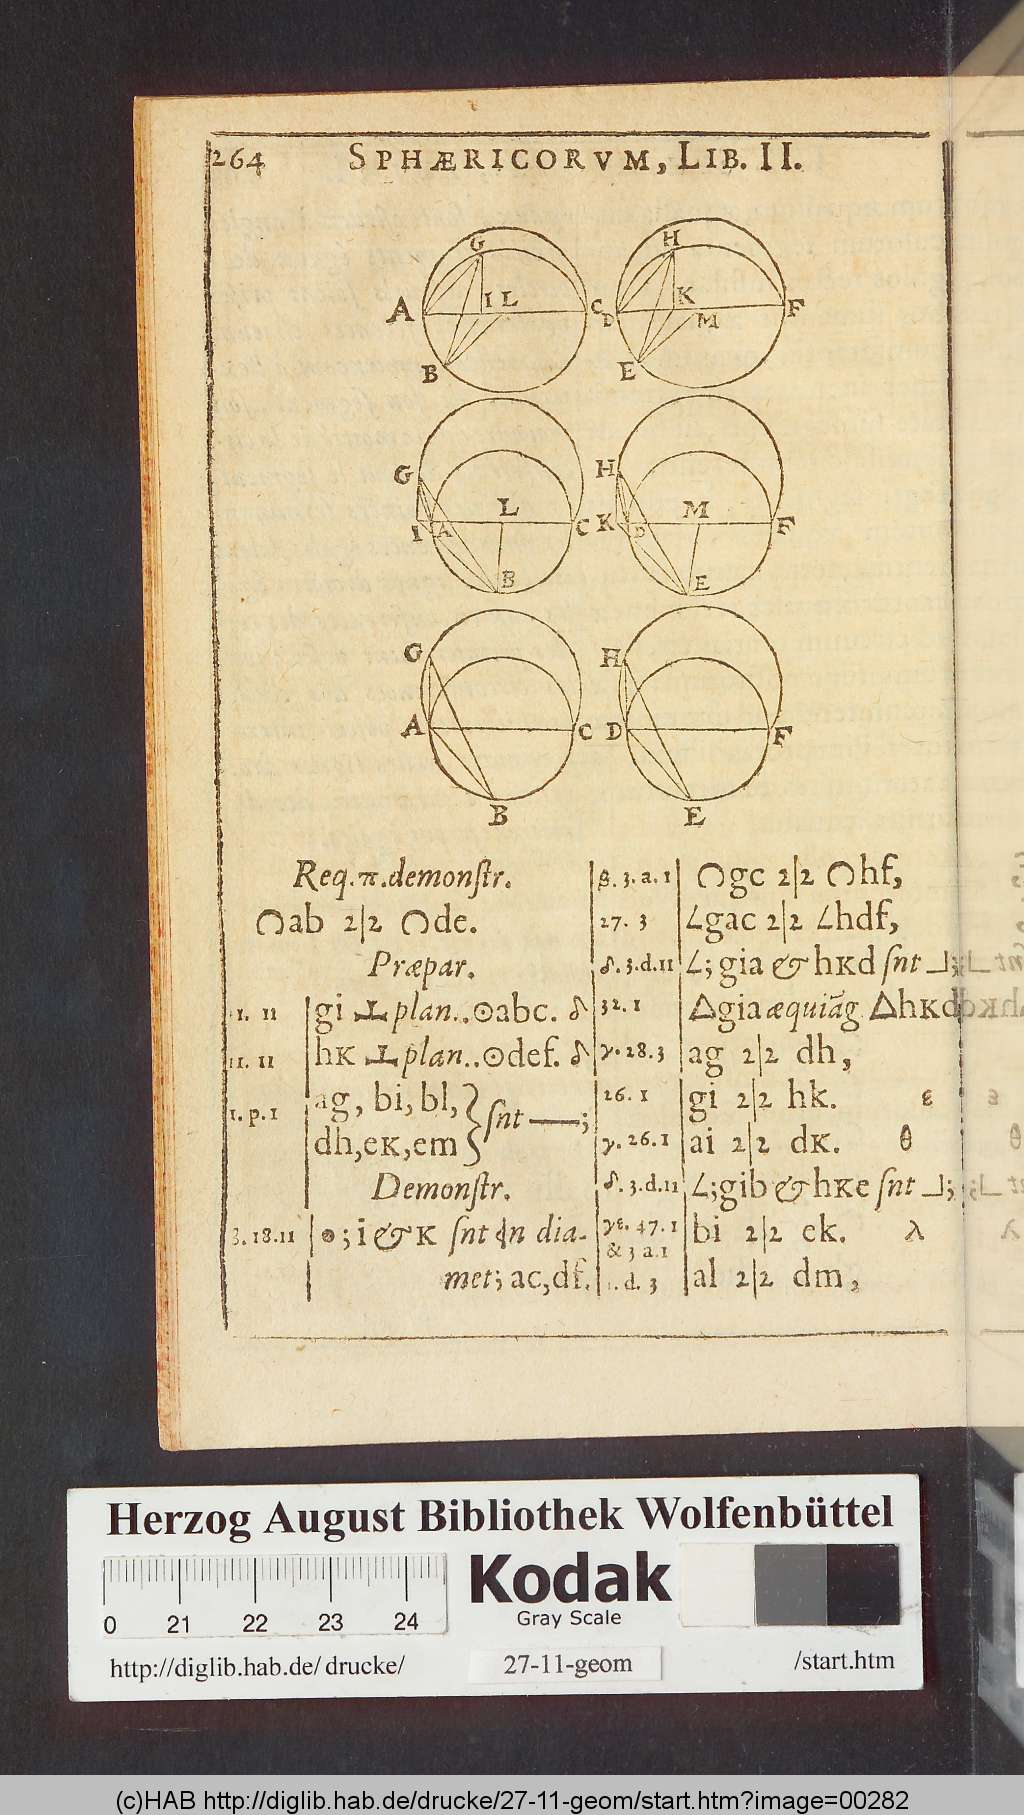 264 SPHÆRICORVM, LIB. II.
G H
A I L C D K M F
B E
G H
I A L C K D M F
B E
G H
A C D F
B E
Req. π. demonſtr.
◠ab 2|2 ◠de.
Præpar.
1. 11 gi ⊥ plan. ⊙abc. δ
11. 11 hK ⊥ plan. ⊙def. δ
1. p. 1 ag, bi, bl,
dh, eK, em } ſnt —;
Demonſtr.
3. 18. 11 ⊙; i & K ſnt in dia-
met; ac, df.
β. 3. a. 1 ◠gc 2|2 ◠hf,
27. 3 ∠gac 2|2 ∠hdf,
δ. 3. d. 11 ∠; gia & hKd ſnt ⅃;
32. 1 △gia æquiãg △hKd
γ. 28. 3 ag 2|2 dh,
26. 1 gi 2|2 hk. ε
γ. 26. 1 ai 2|2 dK. θ
δ. 3. d. 11 ∠; gib & hKe ſnt ⅃;
γε. 47. 1
& 3 a. 1 bi 2|2 ek. λ
1. d. 3 al 2|2 dm,
Herzog August Bibliothek Wolfenbüttel
0 21 22 23 24
Kodak
Gray Scale
http://diglib.hab.de/ drucke/ 27-11-geom /start.htm
(c)HAB http://diglib.hab.de/drucke/27-11-geom/start.htm?image=00282